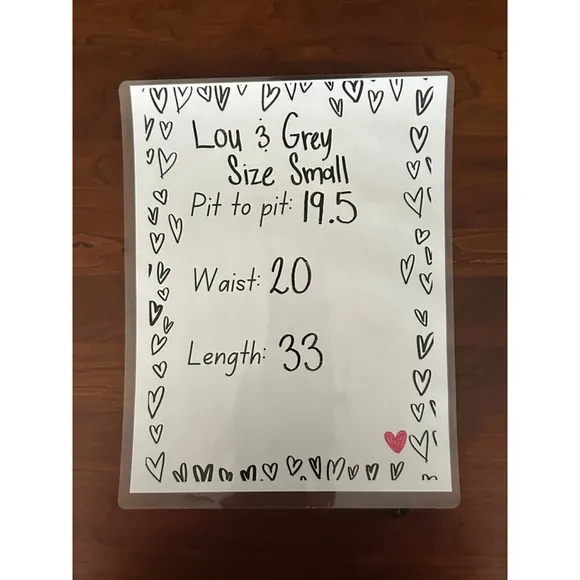 Lou & Grey
Size Small
Pit to pit: 19.5
Waist: 20
Length: 33